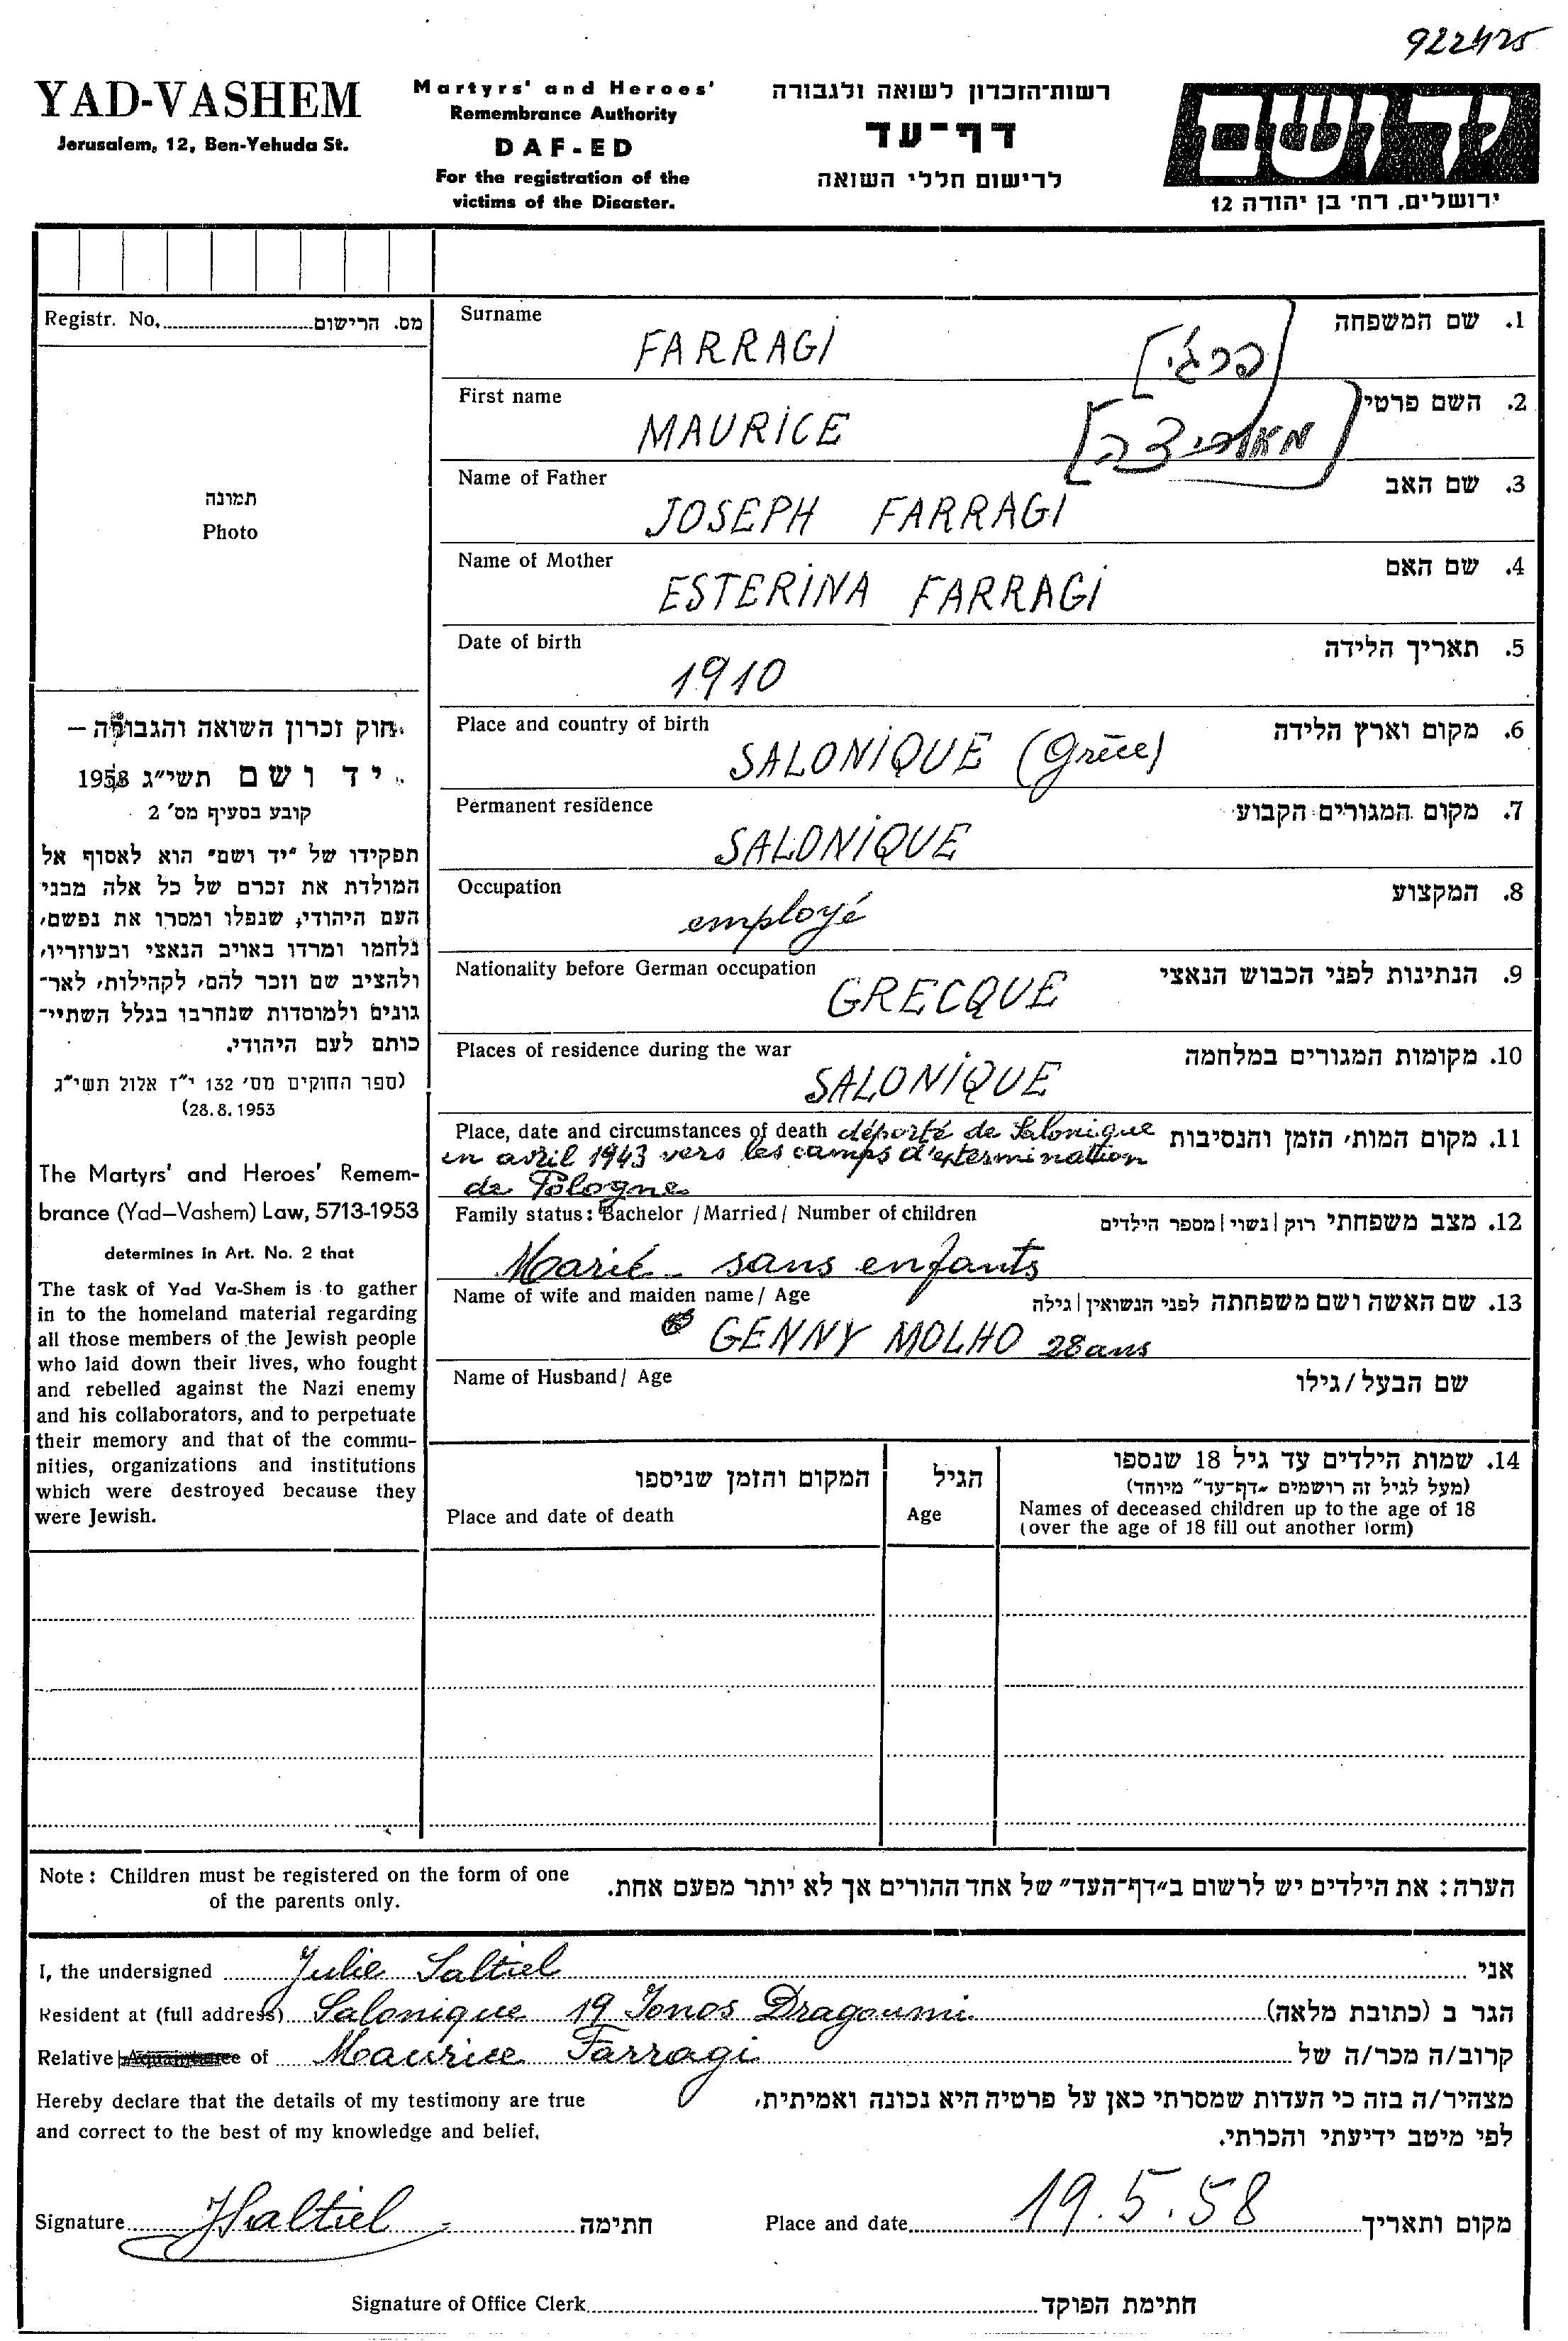 922425
YAD-VASHEM
Jerusalem, 12, Ben-Yehuda St.
Martyrs' and Heroes'
Remembrance Authority
DAF-ED
For the registration of the
victims of the Disaster.
רשות־הזכרון לשואה ולגבורה
דף־עד
לרישום חללי השואה
יד ושם
ירושלים, רח' בן יהודה 12
Registr. No. מס. הרישום
תמונה
Photo
חוק זכרון השואה והגבורה –
יד ושם תשי״ג 1953
קובע בסעיף מס' 2
תפקידו של ״יד ושם״ הוא לאסוף אל
המולדת את זכרם של כל אלה מבני
העם היהודי, שנפלו ומסרו את נפשם,
נלחמו ומרדו באויב הנאצי ובעוזריו,
ולהציב שם וזכר להם, לקהילות, לאר־
גונים ולמוסדות שנחרבו בגלל השתיי־
כותם לעם היהודי.
(ספר החוקים מס' 132 י״ז אלול תשי״ג
28.8.1953)
The Martyrs' and Heroes' Remem-
brance (Yad–Vashem) Law, 5713-1953
determines in Art. No. 2 that
The task of Yad Va-Shem is to gather
in to the homeland material regarding
all those members of the Jewish people
who laid down their lives, who fought
and rebelled against the Nazi enemy
and his collaborators, and to perpetuate
their memory and that of the commu-
nities, organizations and institutions
which were destroyed because they
were Jewish.
Surname 1. שם המשפחה
FARRAGI [פרג'י]
First name 2. השם פרטי
MAURICE [מאוריצה]
Name of Father 3. שם האב
JOSEPH FARRAGI
Name of Mother 4. שם האם
ESTERINA FARRAGI
Date of birth 5. תאריך הלידה
1910
Place and country of birth 6. מקום וארץ הלידה
SALONIQUE (Grèce)
Permanent residence 7. מקום המגורים הקבוע
SALONIQUE
Occupation 8. המקצוע
employé
Nationality before German occupation 9. הנתינות לפני הכבוש הנאצי
GRECQUE
Places of residence during the war 10. מקומות המגורים במלחמה
SALONIQUE
Place, date and circumstances of death déporté de Salonique 11. מקום המות, הזמן והנסיבות
en avril 1943 vers les camps d'extermination
de Pologne
Family status: Bachelor / Married / Number of children 12. מצב משפחתי רוק | נשוי | מספר הילדים
Marié - sans enfants
Name of wife and maiden name / Age 13. שם האשה ושם משפחתה לפני הנשואין | גילה
GENNY MOLHO 28 ans
Name of Husband / Age שם הבעל / גילו
14. שמות הילדים עד גיל 18 שנספו
(מעל לגיל זה רושמים ״דף־עד״ מיוחד)
Names of deceased children up to the age of 18
(over the age of 18 fill out another form)
הגיל
Age
המקום והזמן שניספו
Place and date of death
Note: Children must be registered on the form of one
of the parents only.
הערה: את הילדים יש לרשום ב״דף־העד״ של אחד ההורים אך לא יותר מפעם אחת.
I, the undersigned Julie Saltiel אני
Resident at (full address) Salonique 19 Ionos Dragoumi הגר ב (כתובת מלאה)
Relative of Maurice Farragi קרוב/ה מכר/ה של
Hereby declare that the details of my testimony are true
and correct to the best of my knowledge and belief.
מצהיר/ה בזה כי העדות שמסרתי כאן על פרטיה היא נכונה ואמיתית,
לפי מיטב ידיעתי והכרתי.
Signature JSaltiel חתימה
Place and date 19.5.58 מקום ותאריך
Signature of Office Clerk חתימת הפוקד